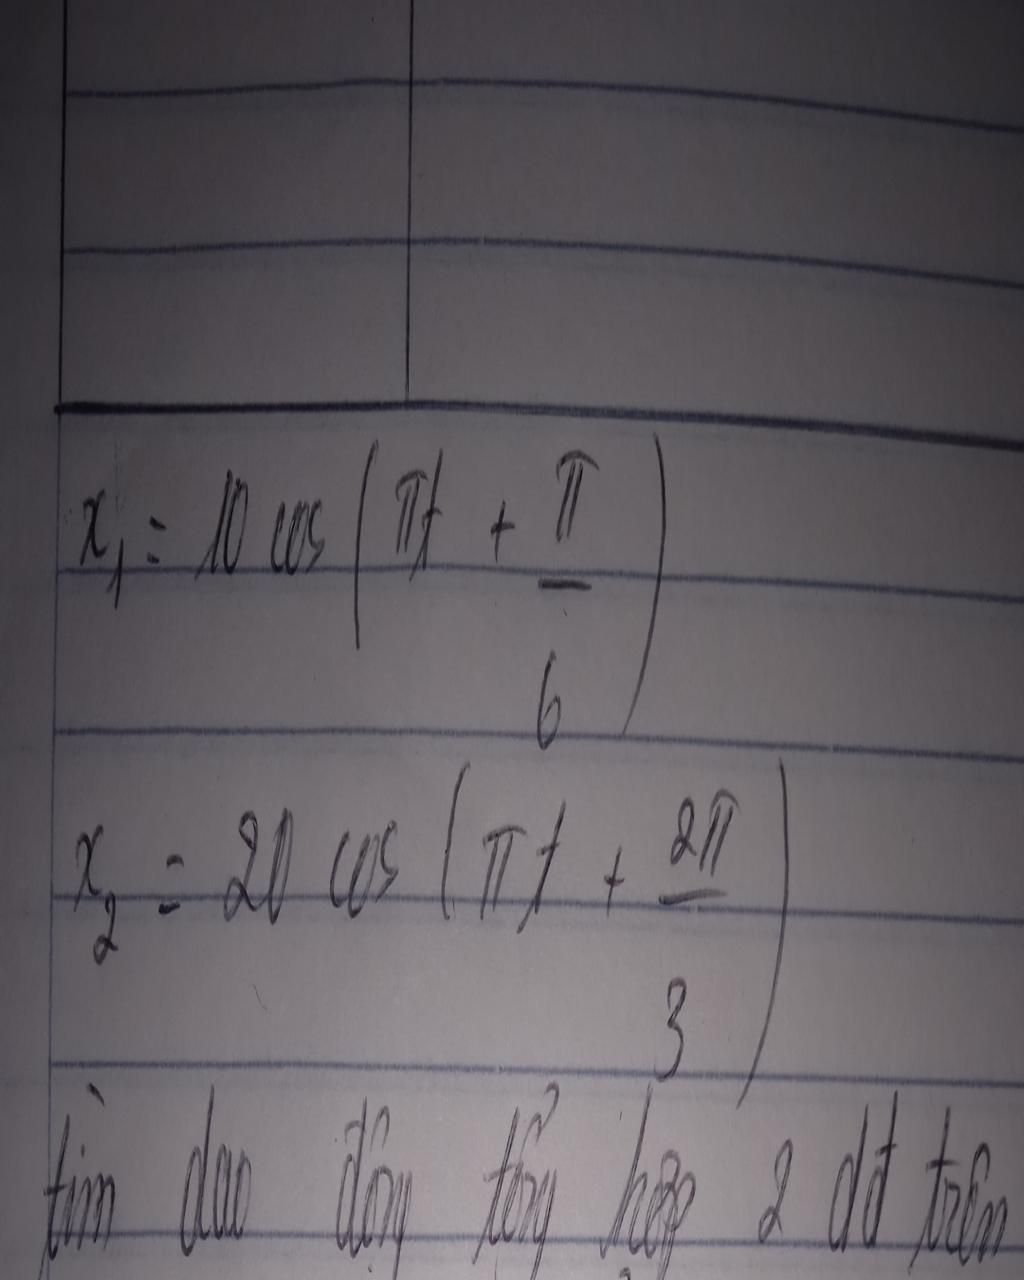 x₁ = 10 cos (πt + π/6)
x₂ = 20 cos (πt + 2π/3)
tìm dao động tổng hợp 2 dđ trên